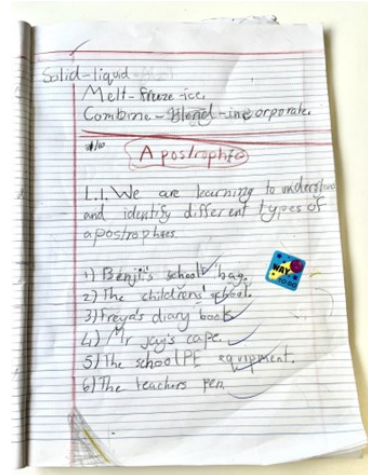 Solid-liquid
Melt-freeze-ice.
Combine-Blend-incorporate.
Apostrophe
L.I. We are learning to understand
and identify different types of
apostrophies
1) Benji's school bag.
2) The childrens' school.
3) Freya's diary book
4) Mr Jay's cape.
5) The school PE equipment.
6) The teachers pen.
WAY
TO GO